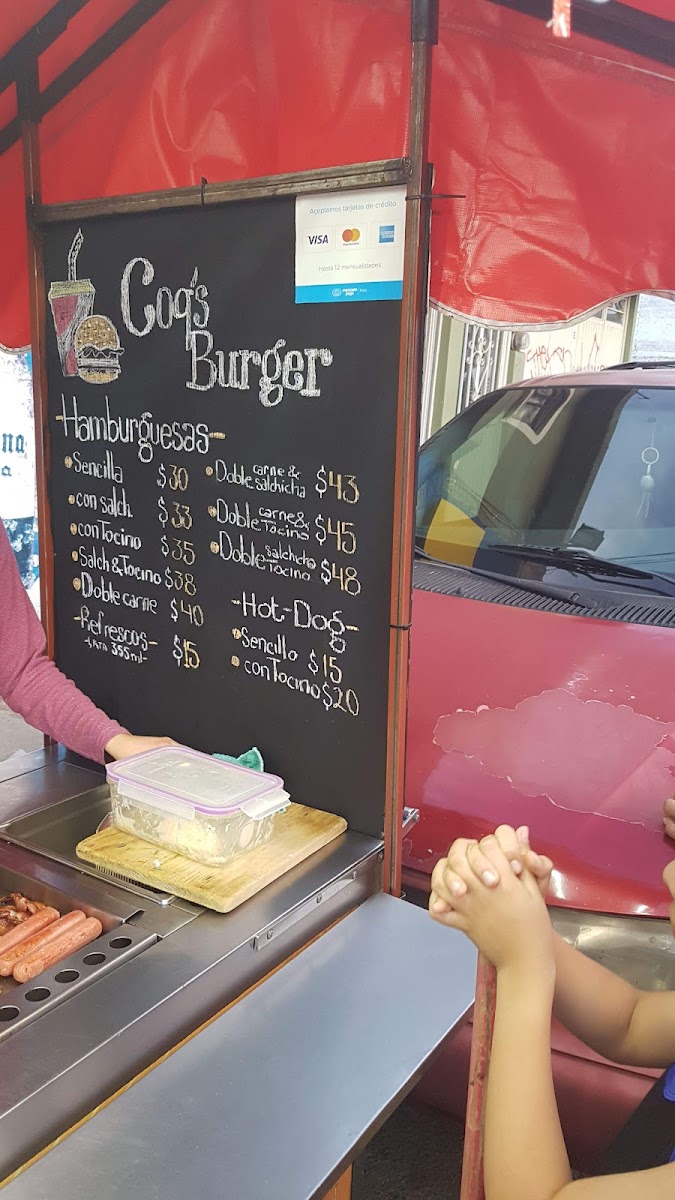 Aceptamos tarjetas de crédito
VISA
Hasta 12 mensualidades.
mercado pago
Coq's
Burger
-Hamburguesas-
Sencilla $30
con salch. $33
con Tocino $35
Salch & Tocino $38
Doble carne $40
-Refrescos-
-LATA 355ml-
$15
Doble carne & salchicha $43
Doble carne & Tocina $45
Doble salchicha Tocino $48
-Hot-Dog-
Sencillo $15
con Tocino $20
na